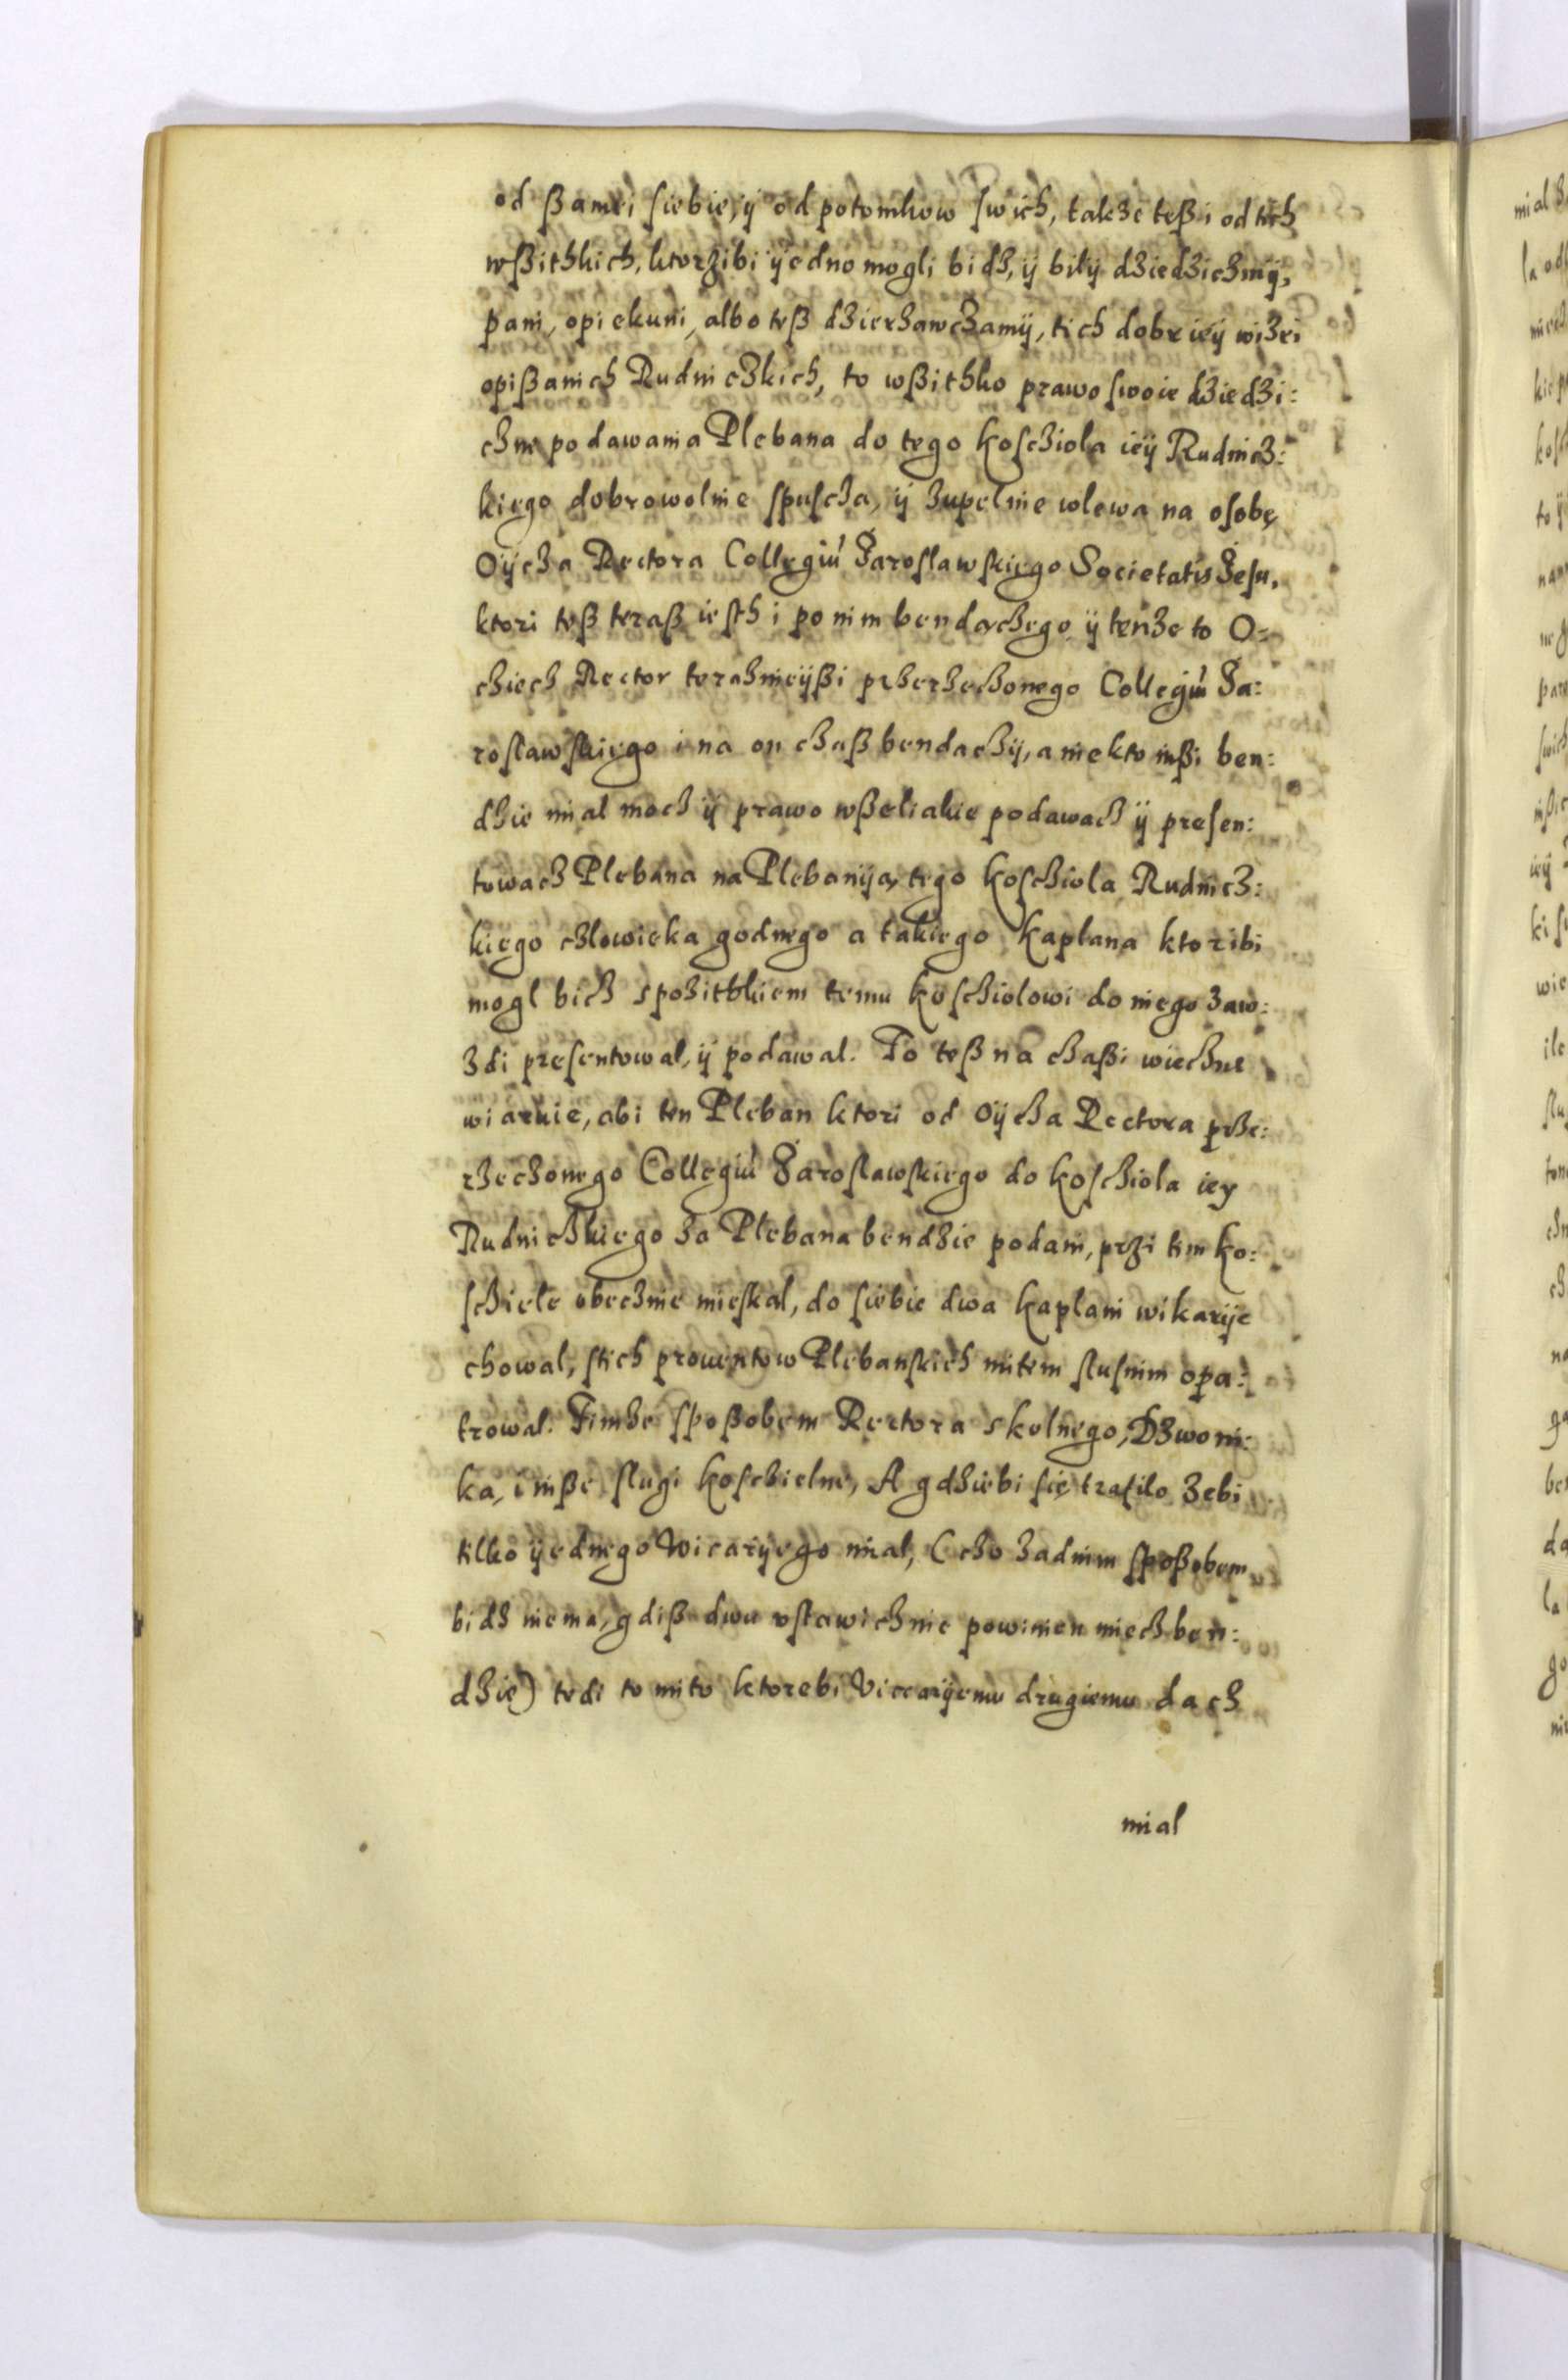 od ßamei siebie, ÿ od potomkow swich, takze teß i od tich
wßithkich, ktorzibi ÿedno mogli bidz, ÿ bilÿ dziedzicznÿ,
pani, opiekuni, albo teß dzierzawczamÿ, tich dobr ieÿ wizei
opißanich Rudniczkich, to wßithko prawo swoie dziedzi:
czne podawania Plebana do tego kosciola ieÿ Rudnicz:
kiego dobrowolnie spuscza, ÿ zupelnie wlewa na osobę
Oÿcza Rectora Collegiú Jaroslawskiego Societatis Jesu,
ktori teß teraß iesth i po nim bendaczego ÿ tenze to O:
cziecz Rector teraznieÿßi przerzeczonego Collegiú Ja:
roslawskiego i na on czaß bendaczÿ, a nie kto inßi ben:
dzie mial mocz ÿ prawo wßeliakie podawacz ÿ presen:
towacz Plebana na Plebanÿa, tego kosciola Rudnicz:
kiego czlowieka godnego a takiego kaplana ktoribi
mogl bicz spozithkiem temu kosciolowi do niego zaw:
zdi presentowal, ÿ podawal. To teß na czaßi wieczne
wiaruie, abi ten Pleban ktori od Oÿcza Rectora prze:
rzeczonego Collegiú Jaroslawskiego do kosciola iey
Rudniczkiego za Plebana bendzie podani, przi tim ko:
sciele obecznie mieskal, do siebie dwa kaplani wikarÿe
chowal, stich prouentow Plebanskich mitem slusnim opa:
trowal. Timze spoßobem Rectora skolnego, Dzwoni:
ka, i inße slugi koscielne, A gdziebi się trafilo zebi
tilko ÿednego Wicarÿego mial, (czo zadnim spoßobem
bidz niema, gdiß dwu ustawicznie powinien miecz ben:
dzie) tedi to mito ktorebi Viccarÿemu drugiemu dacz
mial